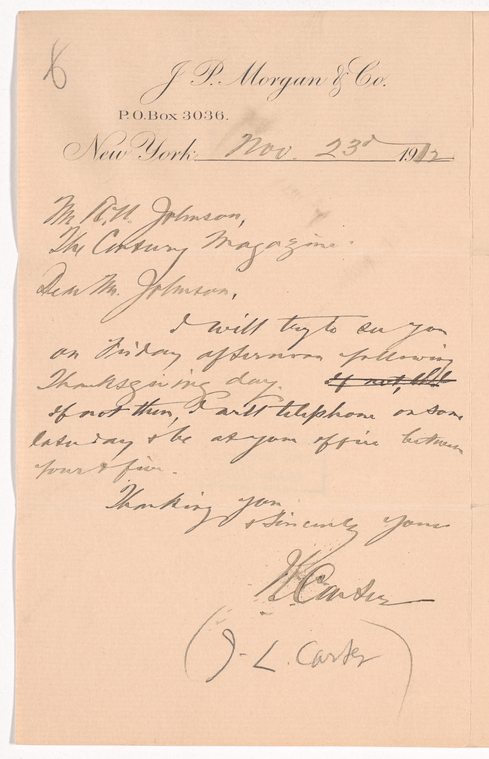 8
J. P. Morgan & Co.
P.O. Box 3036.
New York Nov. 23d 1912
Mr R. U. Johnson,
The Century Magazine.
Dear Mr. Johnson,
I will try to see you
on Friday afternoon following
Thanksgiving day. if not, I'll
if not then, I will telephone on some
later day & be at your office between
four & five.
Thanking you
& sincerely yours
Carter
(J. L. Carter)